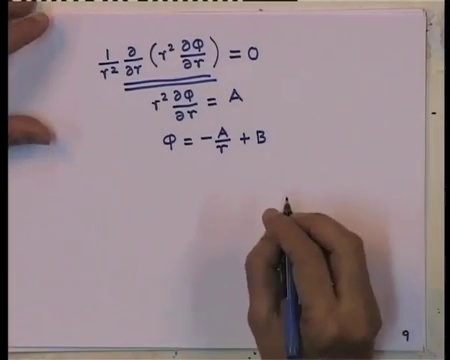 1/r² ∂/∂r (r² ∂φ/∂r) = 0
r² ∂φ/∂r = A
φ = -A/r + B
9